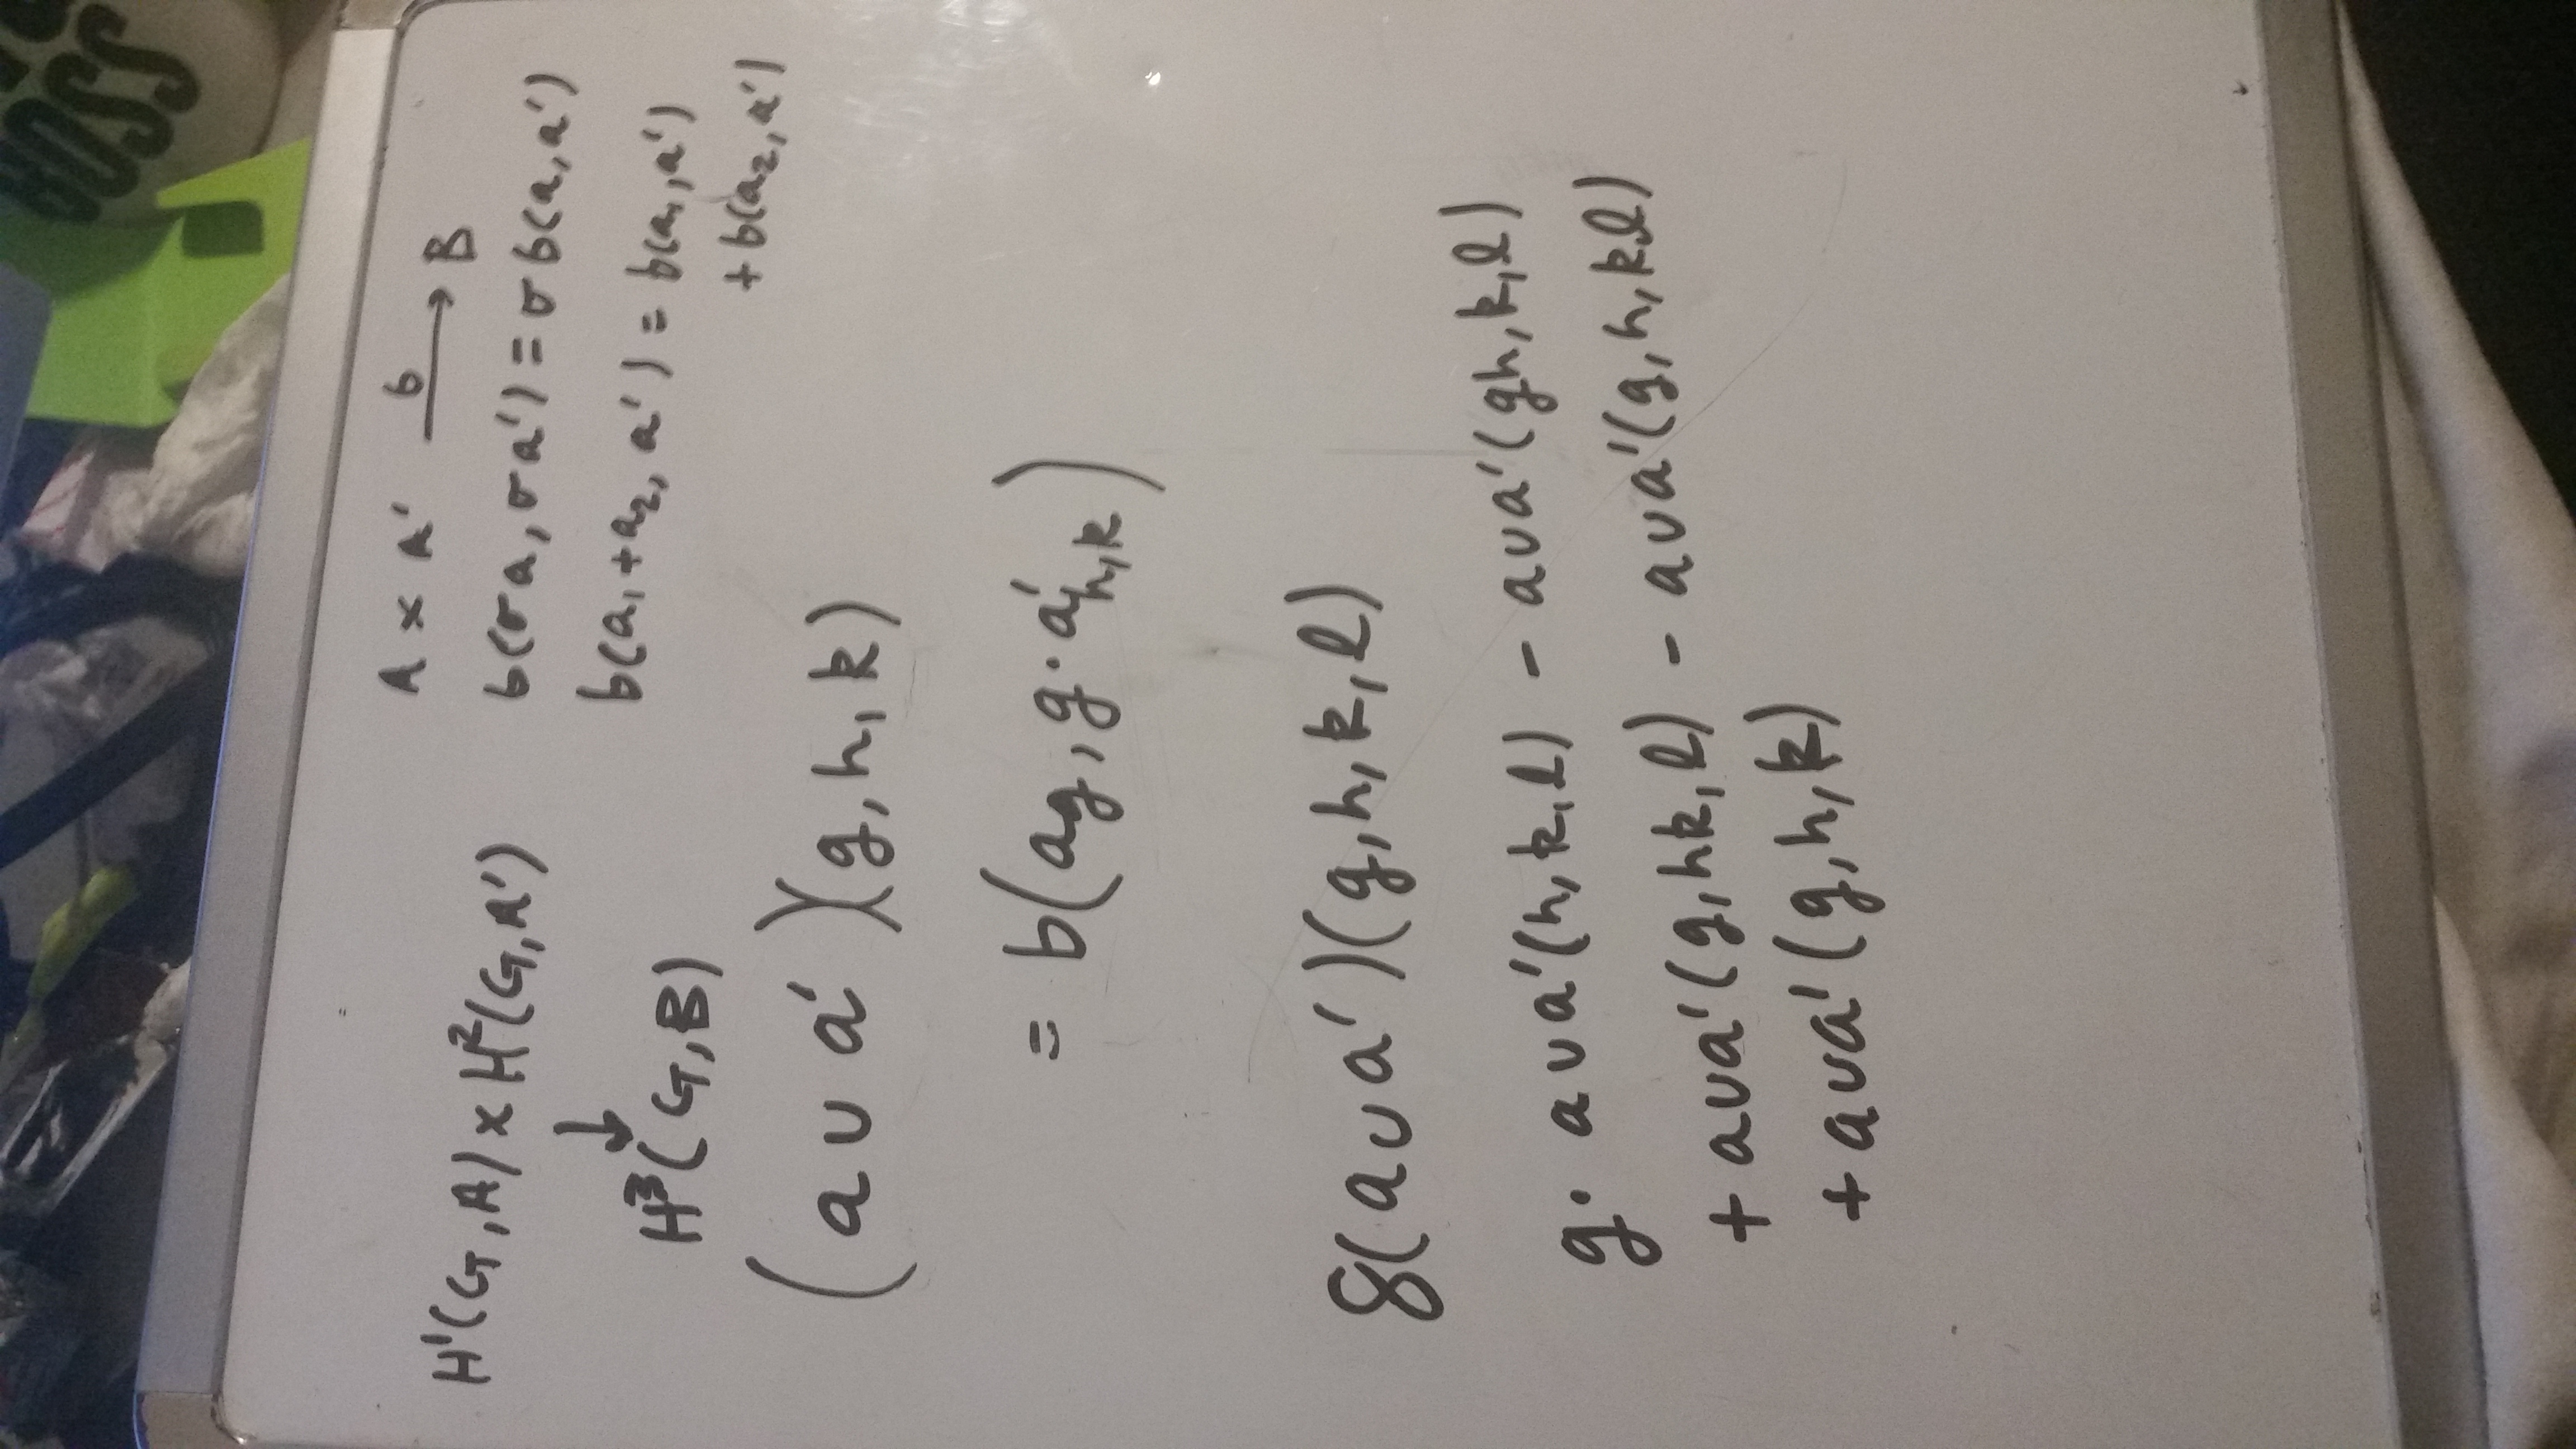 BOSS
H¹(G,A) x H²(G,A')
↓
H³(G,B)
A x A' —b→ B
b(σa, σa') = σb(a,a')
b(a₁+a₂, a') = b(a₁,a')
+ b(a₂,a')
(a ∪ a')(g,h,k)
= b(a_g, g·a'_h,k)
δ(a∪a')(g,h,k,l)
g· a∪a'(h,k,l) - a∪a'(gh,k,l)
+ a∪a'(g,hk,l) - a∪a'(g,h,kl)
+ a∪a'(g,h,k)